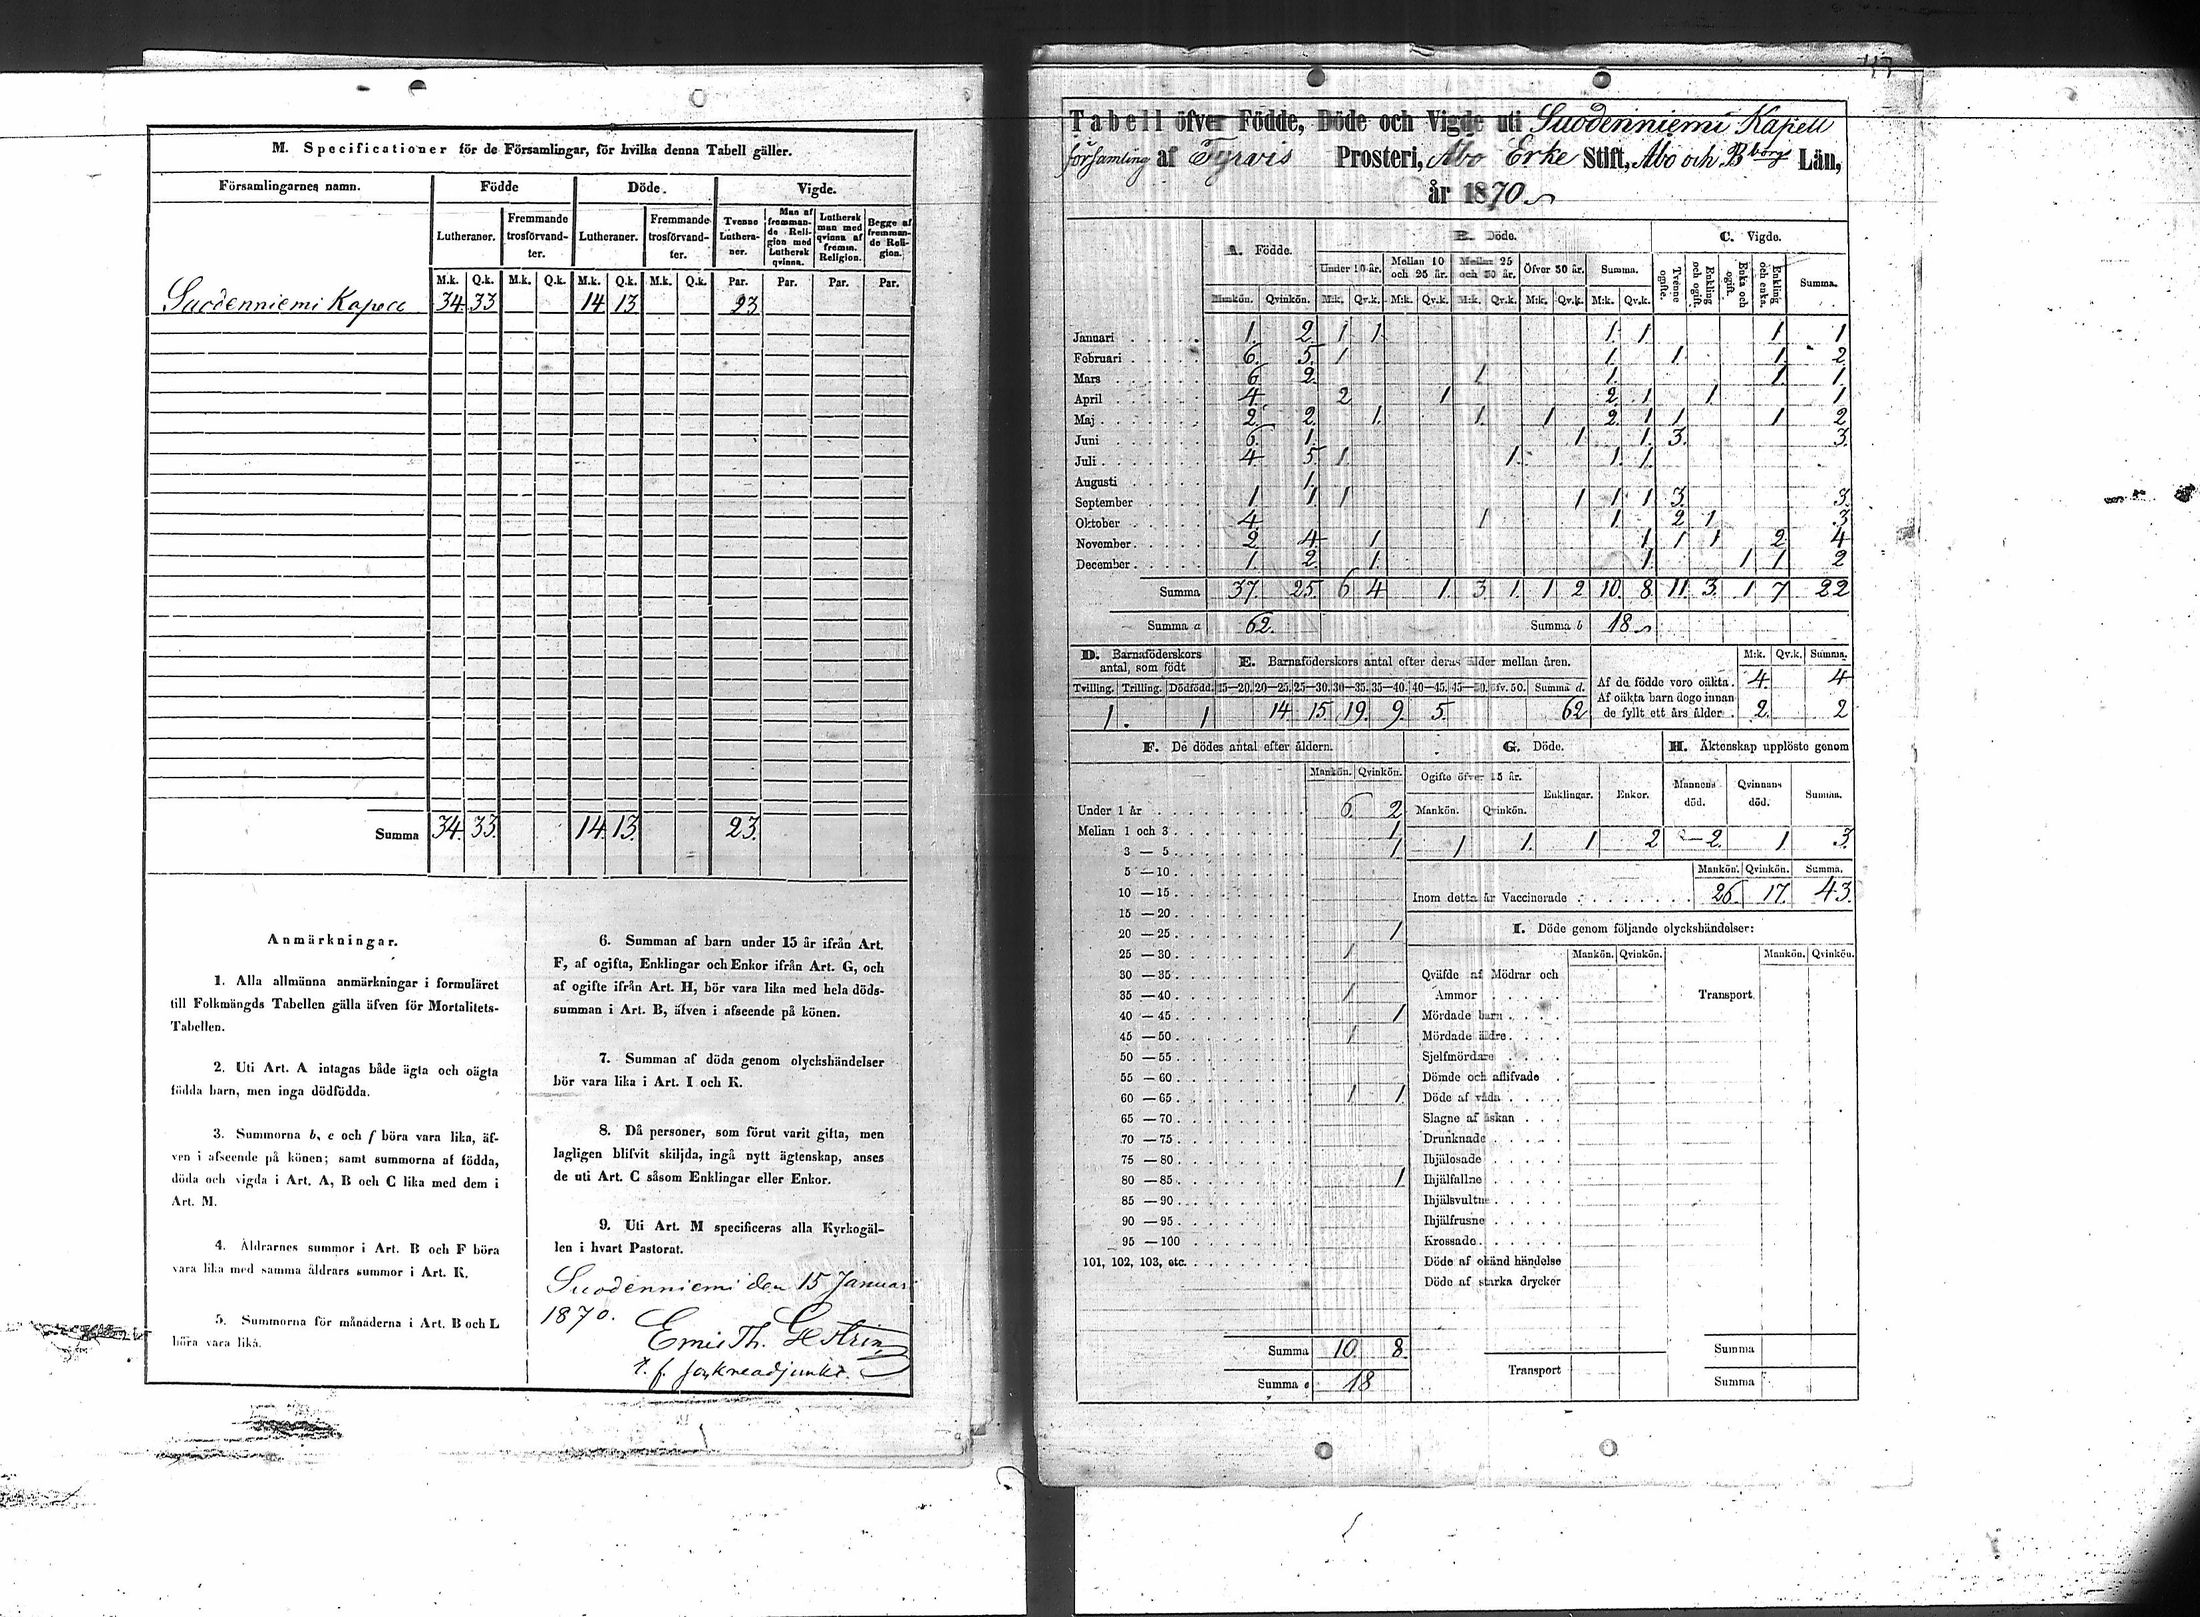 M. Specificationer för de Församlingar, för hvilka denna Tabell gäller.
Församlingarnes namn. Födde Döde. Vigde.
Lutheraner. Fremmande trosförvandter. Lutheraner. Fremmande trosförvandter. Tvenne Lutheraner. Man af fremmande Religion med Luthersk qvinna. Luthersk man med qvinna af fremm. Religion. Begge af fremmande Religion.
M.k. Q.k. M.k. Q.k. M.k. Q.k. M.k. Q.k. Par. Par. Par. Par.
Suodenniemi Kapell 34. 33 14 13 23
Summa 34. 33. 14. 13. 23.
Anmärkningar.
1. Alla allmänna anmärkningar i formuläret
till Folkmängds Tabellen gälla äfven för Mortalitets-
Tabellen.
2. Uti Art. A intagas både ägta och oägta
födda barn, men inga dödfödda.
3. Summorna b, e och f böra vara lika, äf-
ven i afseende på könen; samt summorna af födda,
döda och vigda i Art. A, B och C lika med dem i
Art. M.
4. Åldrarnes summor i Art. B och F böra
vara lika med samma åldrars summor i Art. K.
5. Summorna för månaderna i Art. B och L
böra vara lika.
6. Summan af barn under 15 år ifrån Art.
F, af ogifta, Enklingar och Enkor ifrån Art. G, och
af ogifte ifrån Art. H, bör vara lika med hela döds-
summan i Art. B, äfven i afseende på könen.
7. Summan af döda genom olyckshändelser
bör vara lika i Art. I och K.
8. Då personer, som förut varit gifta, men
lagligen blifvit skiljda, ingå nytt ägtenskap, anses
de uti Art. C såsom Enklingar eller Enkor.
9. Uti Art. M specificeras alla Kyrkogäl-
len i hvart Pastorat.
Suodenniemi den 15 Januari
1870.
Emil Th. Gestrin
t. f. sockneadjunkt.
Tabell öfver Födde, Döde och Vigde uti Suodenniemi Kapell
församling af Tyrvis Prosteri, Åbo Erke Stift, Åbo och Bborgs Län,
år 1870.
A. Födde. B. Döde. C. Vigde.
Under 10 år. Mellan 10 och 25 år. Mellan 25 och 50 år. Öfver 50 år. Summa. Tvenne ogifte. Enkling och ogift. Enka och ogift. Enkling och enka. Summa.
Mankön. Qvinkön. M:k. Qv.k. M:k. Qv.k. M:k. Qv.k. M:k. Qv.k. M:k. Qv.k.
Januari 1. 2. 1 1 1. 1 1 1
Februari 6. 5. 1 1. 1. 1. 2.
Mars 6 2. 1 1. 1. 1.
April 4. 2 1 2. 1 1 1
Maj 2. 2. 1. 1. 1 2. 1 1 1 2
Juni 6. 1. 1 1. 3. 3.
Juli 4 5. 1. 1. 1. 1.
Augusti 1.
September 1 1 1 1 1 1 3. 3.
Oktober 4. 1 1. 2 1 3
November 2 4 1 1 1 1 2 4
December 1. 2. 1. 1. 1 1 2
Summa 37. 25. 6 4 1. 3. 1. 1 2 10. 8. 11. 3. 1 7 22
Summa a 62. Summa b 18
D. Barnaföderskors antal, som födt
Tvilling. Trilling. Dödfödd.
1. 1
E. Barnaföderskors antal efter deras ålder mellan åren.
15—20. 20—25. 25—30. 30—35. 35—40. 40—45. 45—50. öfv. 50. Summa d.
14. 15. 19. 9. 5. 62
M:k. Qv.k. Summa.
Af de födde voro oäkta. 4. 4
Af oäkta barn dogo innan
de fyllt ett års ålder. 2. 2
F. De dödes antal efter åldern.
Mankön. Qvinkön.
Under 1 år 6 2
Mellan 1 och 3 1.
3 — 5 1.
5 — 10
10 — 15
15 — 20
20 — 25 1
25 — 30 1
30 — 35
35 — 40 1
40 — 45 1
45 — 50 1
50 — 55
55 — 60
60 — 65 1 1.
65 — 70
70 — 75
75 — 80
80 — 85 1.
85 — 90
90 — 95
95 — 100
101, 102, 103, etc.
Summa 10. 8.
Summa e 18
G. Döde.
Ogifte öfver 15 år. Enklingar. Enkor.
Mankön. Qvinkön.
1 1. 1 2
H. Äktenskap upplöste genom
Mannens död. Qvinnans död. Summa.
2. 1. 3.
Mankön. Qvinkön. Summa.
Inom detta år Vaccinerade 26. 17. 43.
I. Döde genom följande olyckshändelser:
Mankön. Qvinkön. Mankön. Qvinkön.
Qväfde af Mödrar och
Ammor Transport.
Mördade barn
Mördade äldre
Sjelfmördare
Dömde och aflifvade
Döde af våda
Slagne af åskan
Drunknade
Ihjälosade
Ihjälfallne
Ihjälsvultne
Ihjälfrusne
Krossade
Döde af okänd händelse
Döde af starka drycker
Transport
Summa
Summa